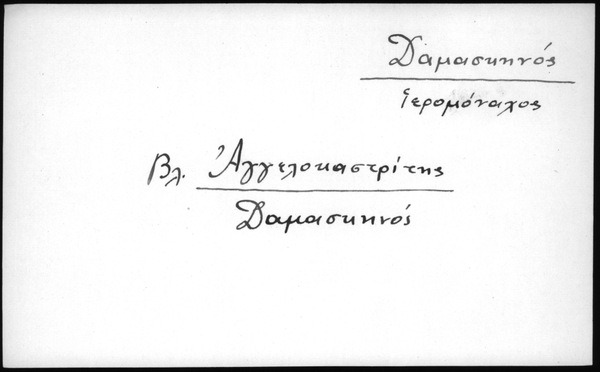 Δαμασκηνός
ἱερομόναχος
Βλ. Ἀγγελοκαστρίτης
Δαμασκηνός